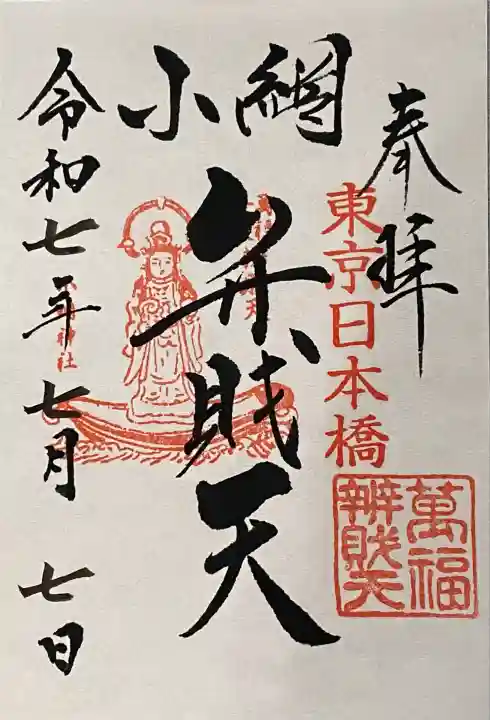 奉拝
東京日本橋
萬福
辨財天
小網
弁財天
神社
令和七年七月七日